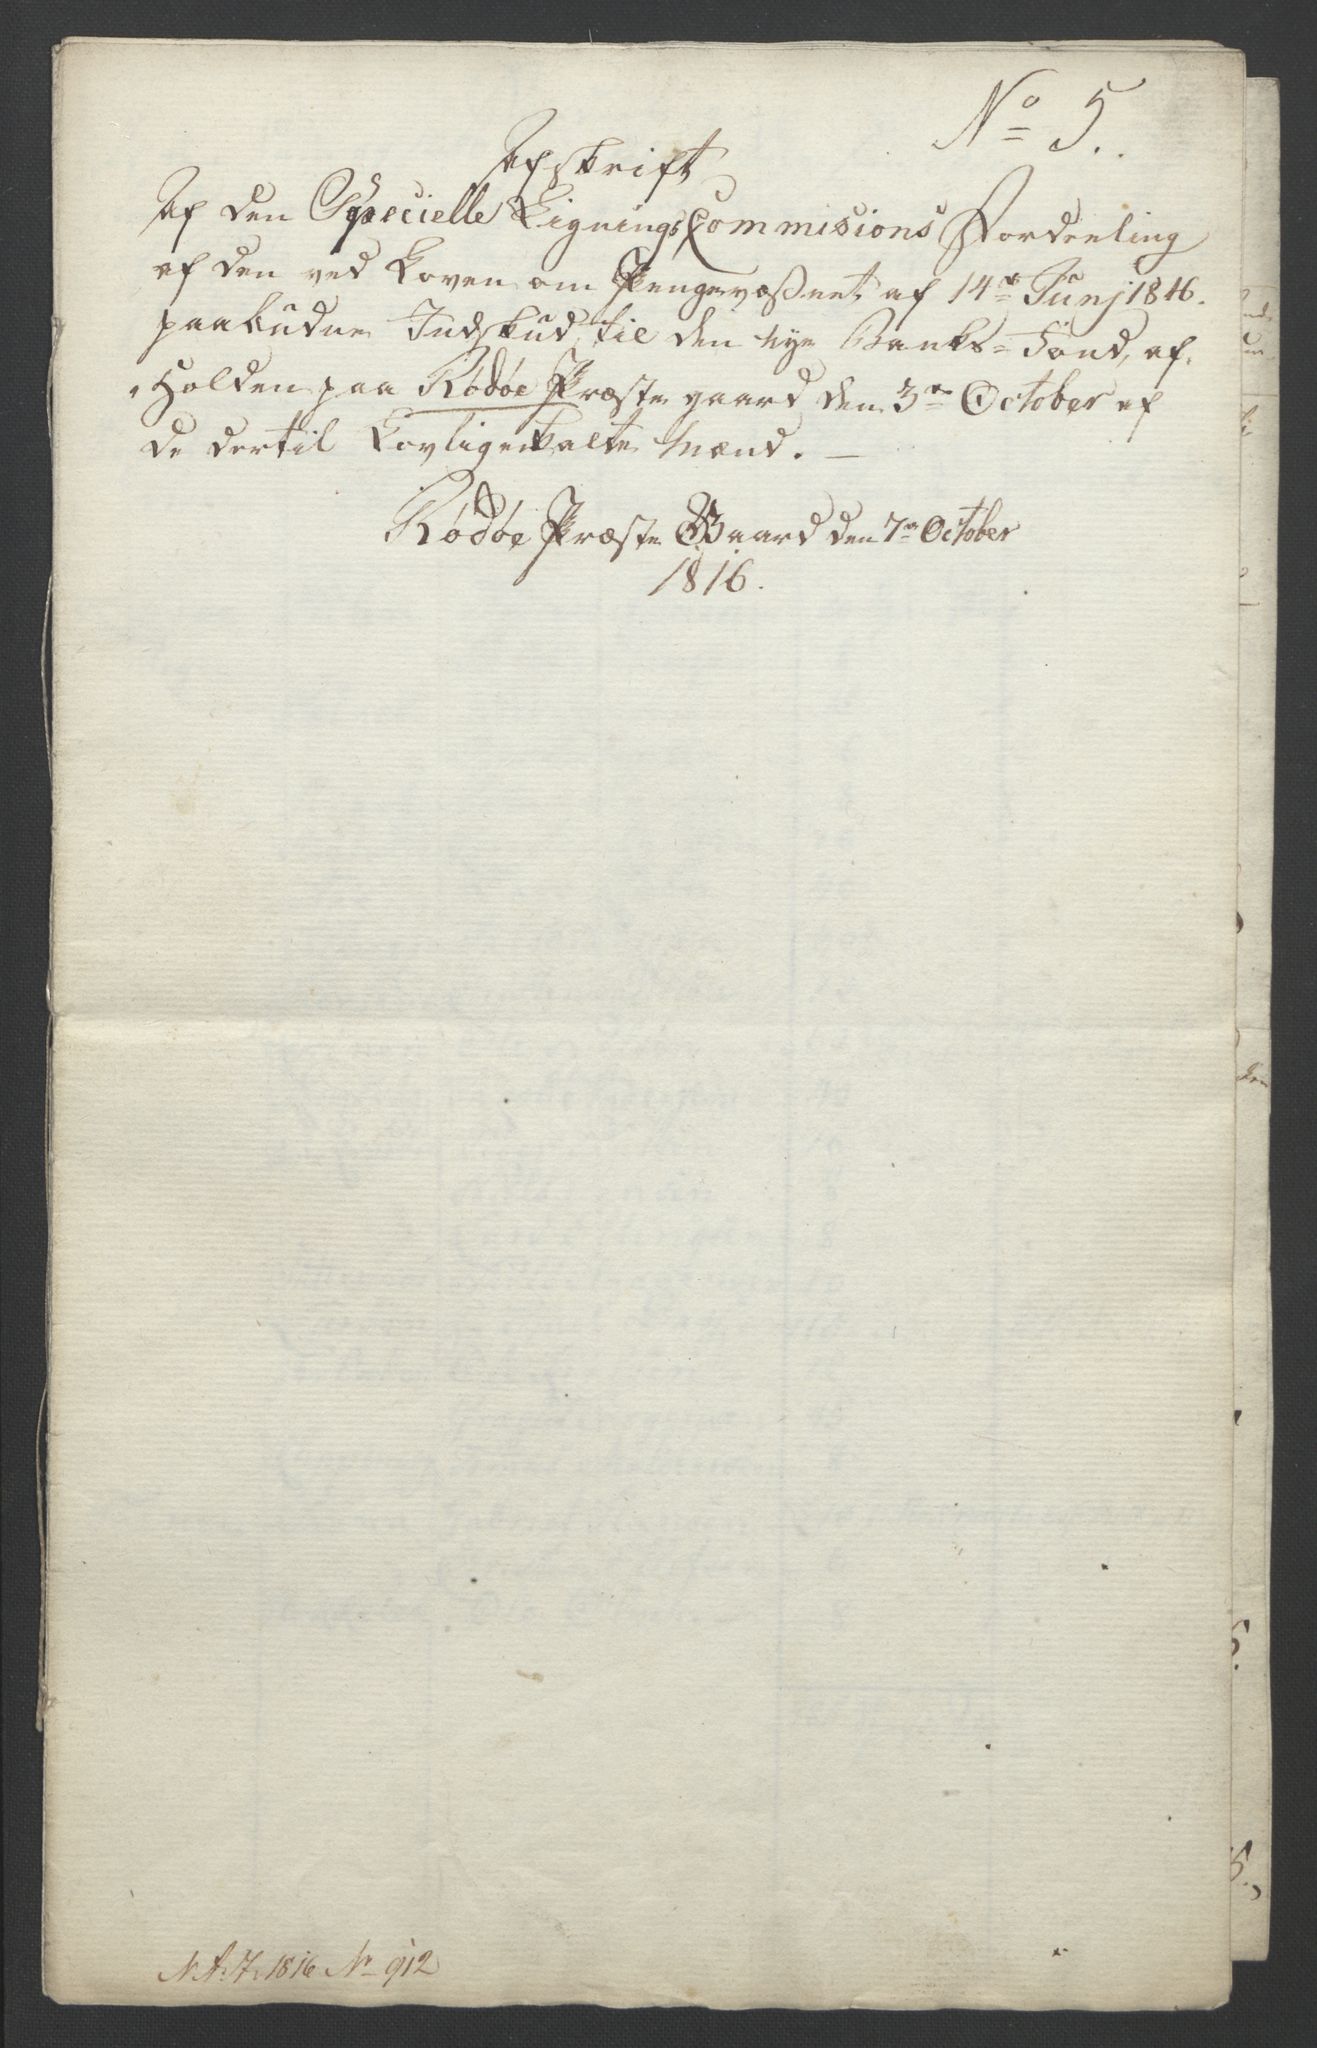 No 5.
Afskrift
Af den Specielle Lignings Commisions Fordeeling
af den ved Loven om Pengevæßenet af 14de Junj 1816.
paabudne Indskud til den nye Banks-Fond, af-
holden paa Rödöe Præstegaard den 3de October af
de dertil Lovligenkalte Mænd. —
Rödöe Præste Gaard den 7de October
1816.
N. A. 7. 1816 No 912